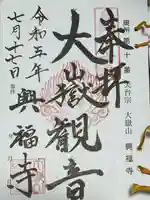 奉拝
天台宗 大嶽山 興福寺
大嶽観音
令和五年
七月十七日
興福寺